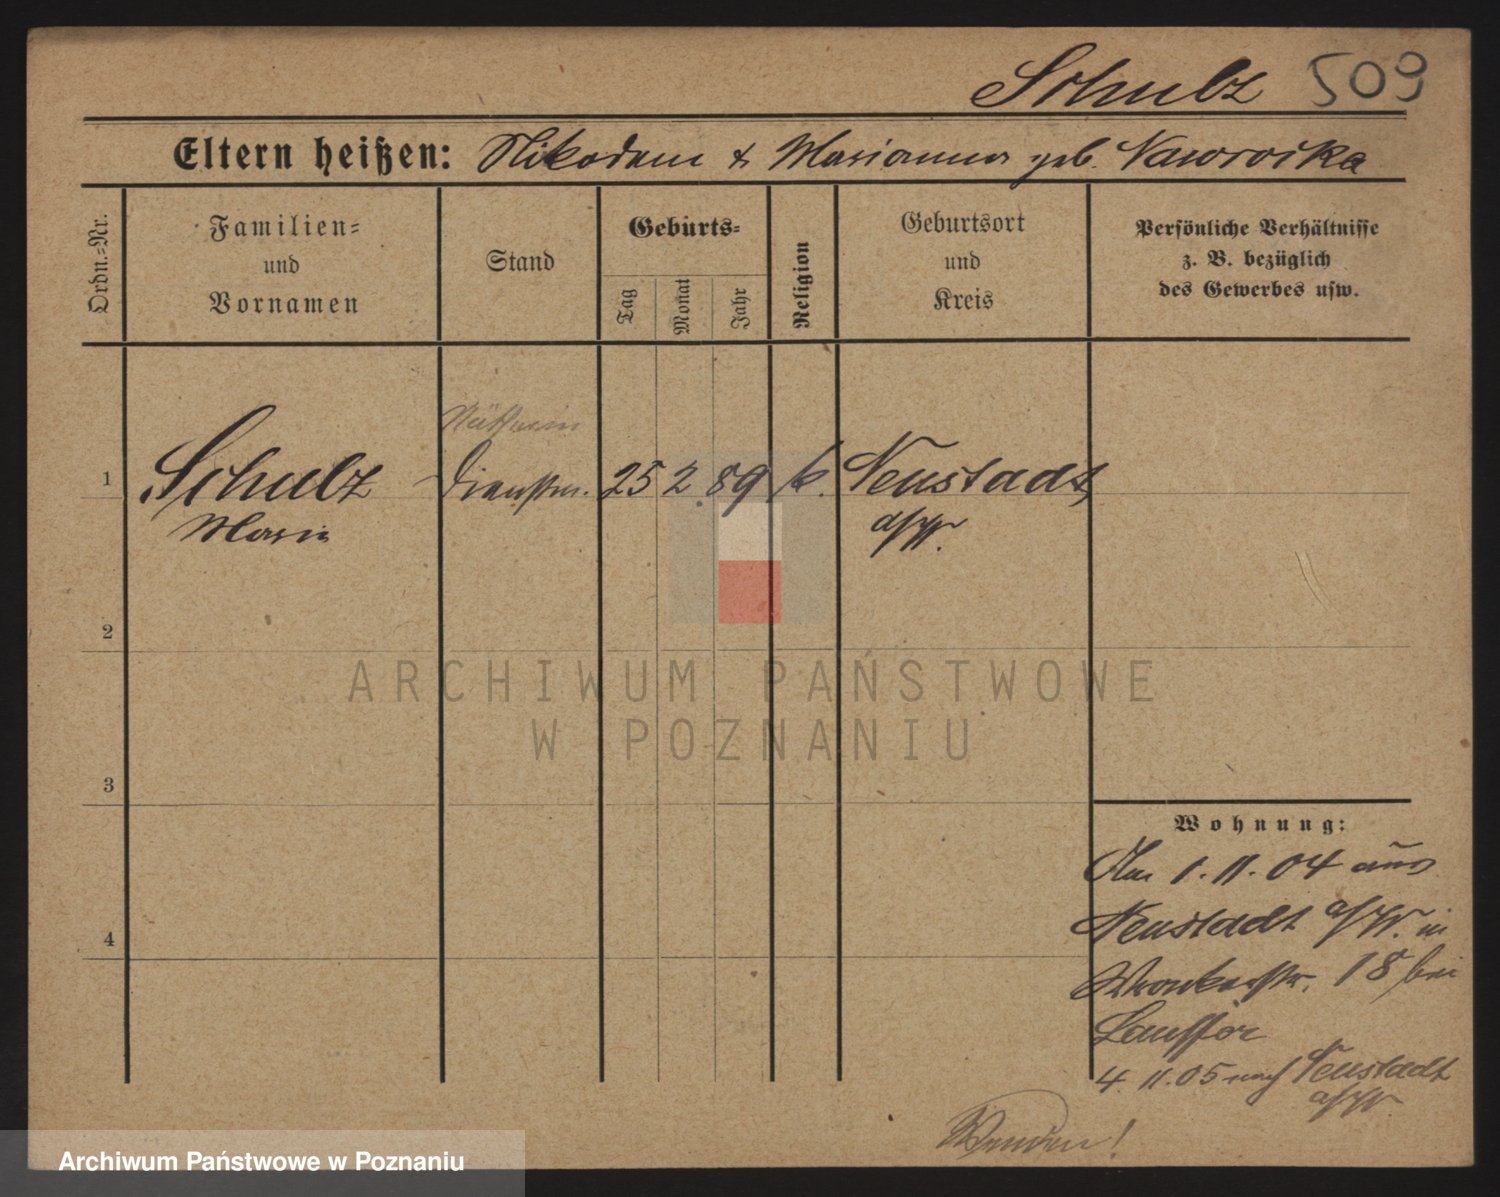 Schulz 509
Eltern heißen: Nikodem & Marianna geb. Nawrocka
Ordn.-Nr.
Familien-
und
Vornamen
Stand
Geburts-
Tag
Monat
Jahr
Religion
Geburtsort
und
Kreis
Persönliche Verhältnisse
z. B. bezüglich
des Gewerbes usw.
1 Schulz Dienstm. 25 2. 89 k. Neustadt
Marie a/W.
2
3
4
ARCHIWUM PAŃSTWOWE
W POZNANIU
Wohnung:
Am 1. 11. 04 aus
Neustadt a/W. in
Wronkerstr. 18 bei
4. 11. 05 nach Neustadt
a/W.
Wenden!
Archiwum Państwowe w Poznaniu